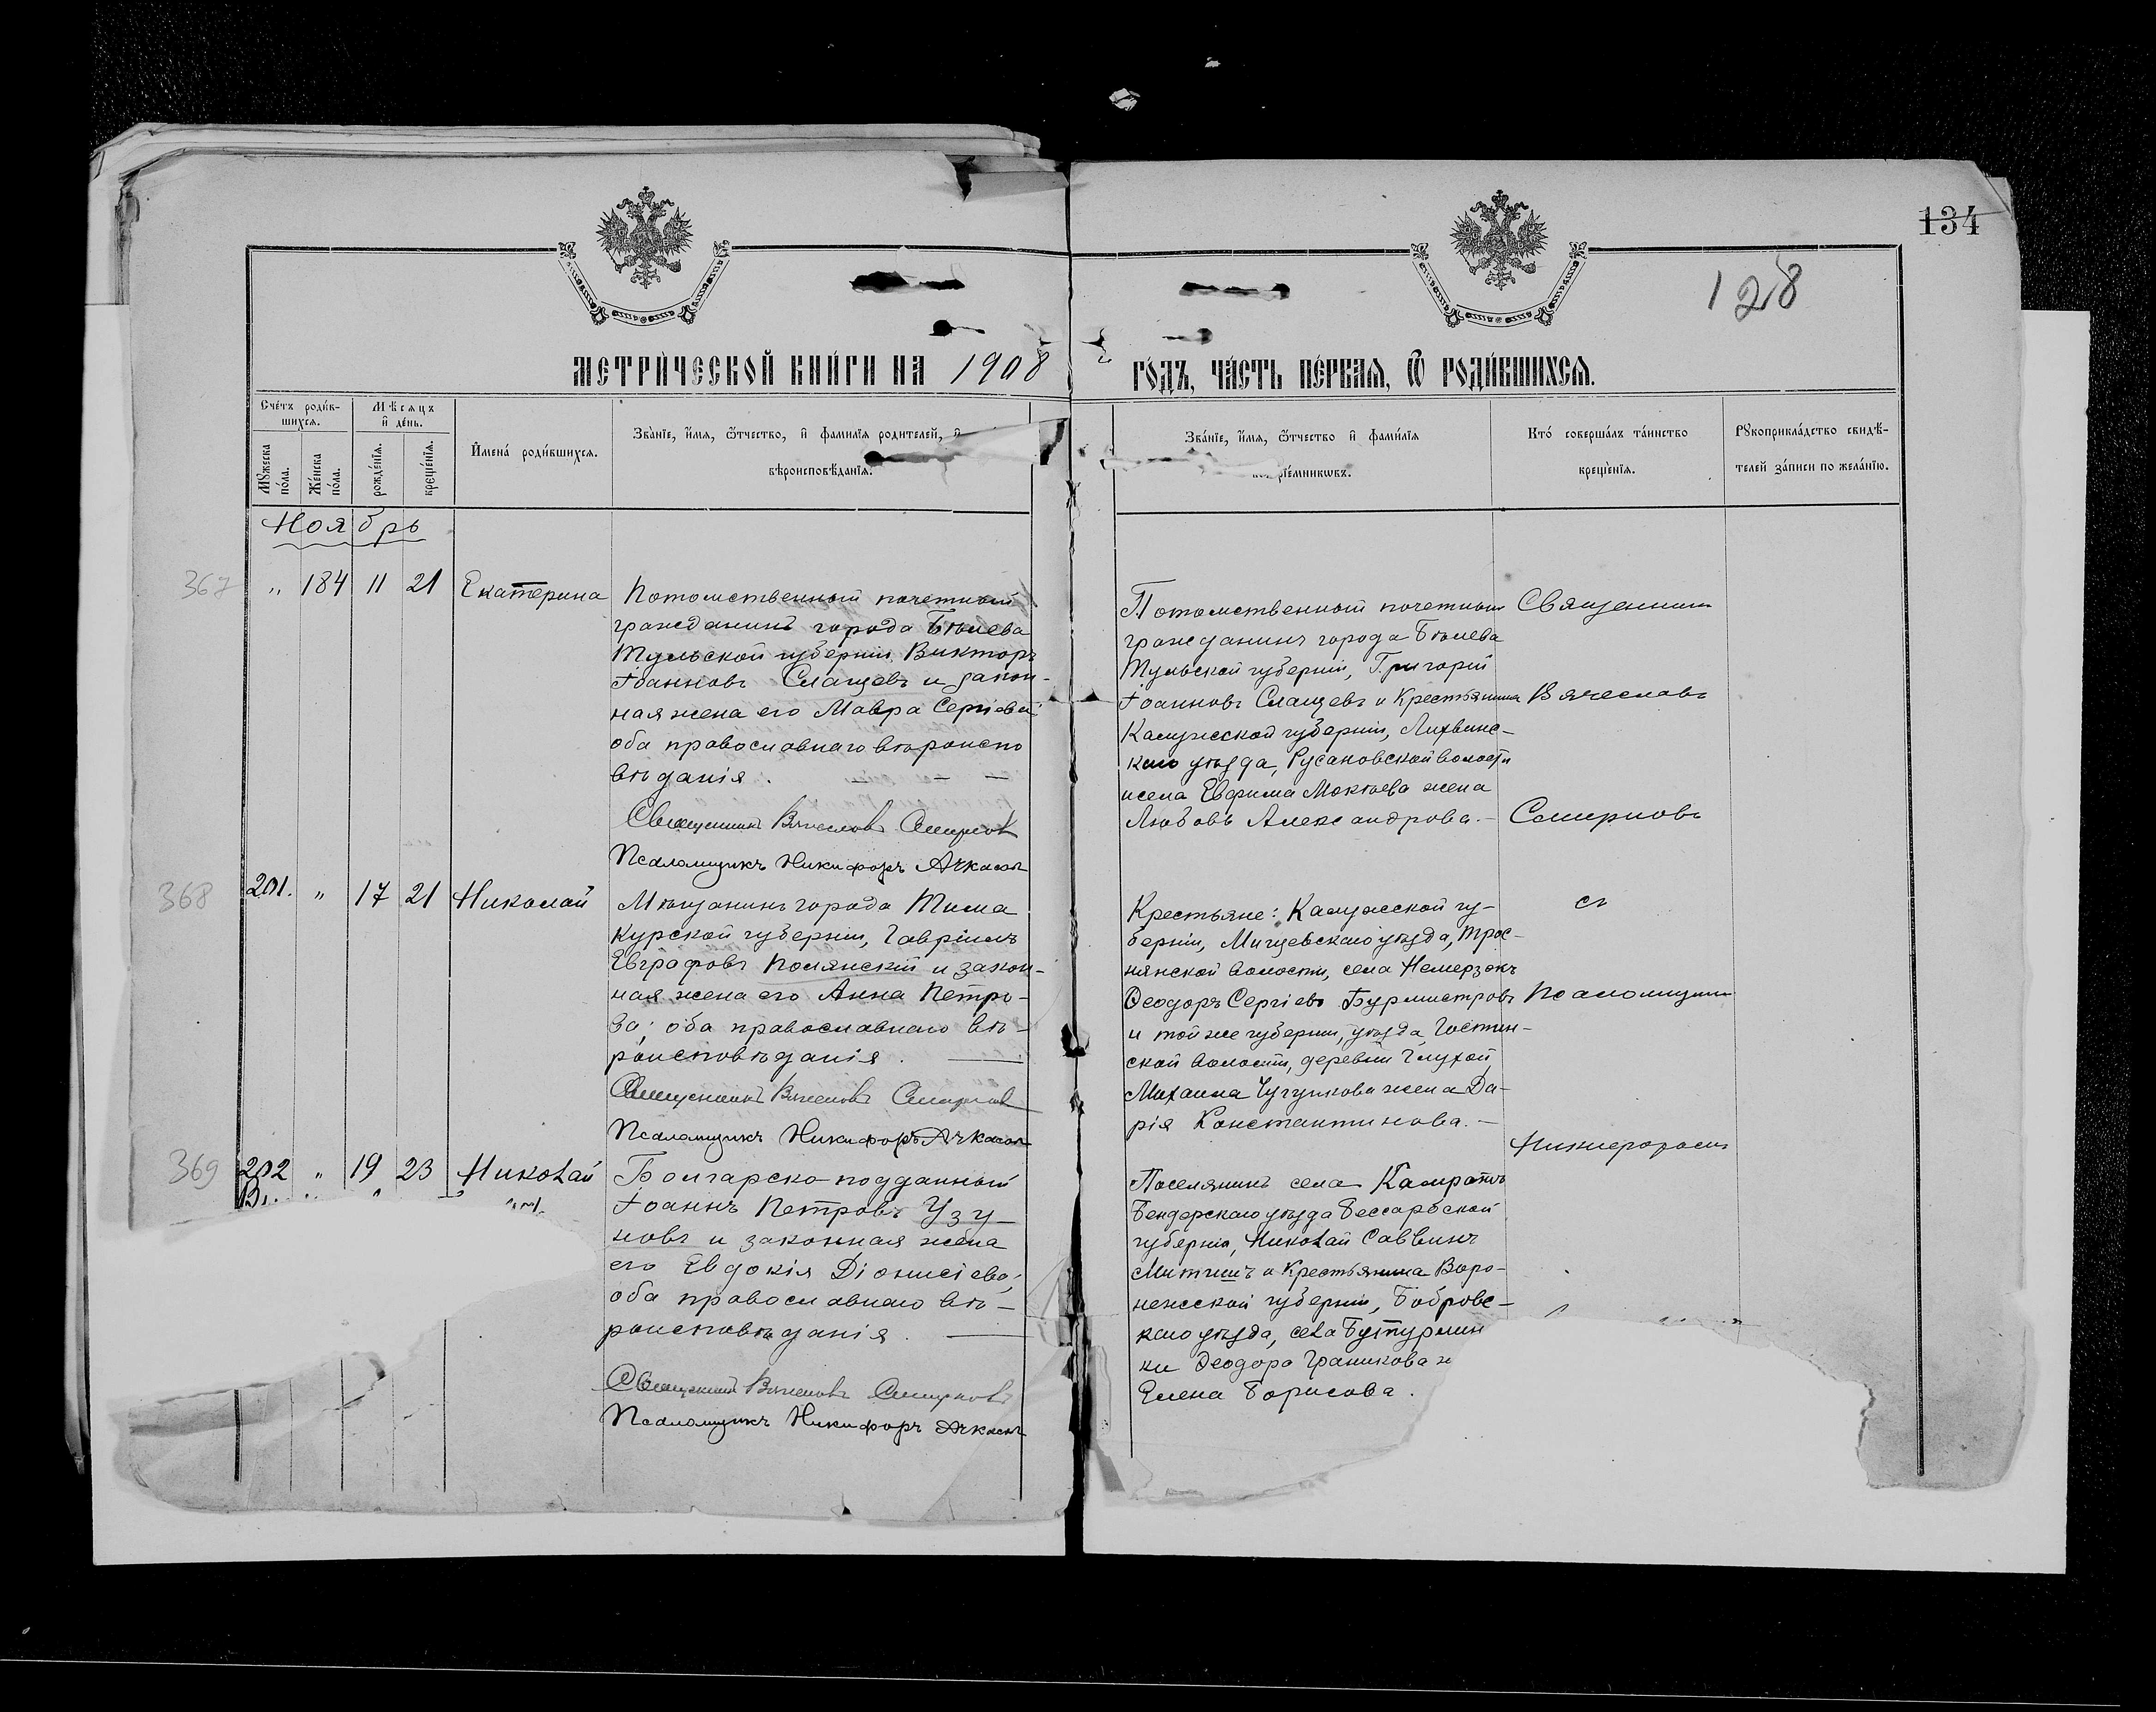 134
128
МЕТРИ́ЧЕСКОЙ КНИ́ГИ НА 1908
ГО́ДЪ, ЧА́СТЬ ПЕ́РВАѦ, Ѿ РОДИ́ВШИХСѦ.
Сче́тъ роди́в-
шихсѧ.
Мѣ́сѧцъ
и҆ де́нь.
Мꙋ́жеска по́ла.
Же́нска по́ла.
рожде́нїѧ.
креще́нїѧ.
И҆мена́ роди́вшихсѧ.
Зва́нїе, и҆́мѧ, ѻ҆́тчество, и҆ фами́лїѧ родителей, и҆
вѣроисповѣ́данїѧ.
Зва́нїе, и҆́мѧ, ѻ҆́тчество и҆ фами́лїѧ
рїе́мникѡвъ.
Кто́ соверша́лъ та́инство
креще́нїѧ.
Рꙋкоприкла́дство свидѣ́-
телей за́писи по жела́нїю.
Ноябрь
367 „ 184 11 21 Екатерина
Потомственный почетный
гражданинъ города Бѣлева
Тульской губерніи Викторъ
Іоанновъ Слащевъ и закон-
ная жена его Мавра Сергіева
оба православнаго вѣроиспо
вѣданія. — —
Священникъ Вячеславъ Смирновъ
Псаломщикъ Никифоръ Ачкасовъ
Потомственный почетный
гражданинъ города Бѣлева
Тульской губерніи, Григорій
Іоанновъ Слащевъ и Крестьянина
Калужской губерніи, Лихвинс-
каго уѣзда, Русановской волости
исела Евфима Мокѣева жена
Любовь Александрова. —
Священникъ
Вячеславъ
Смирновъ
368 201. „ 17 21 Николай
Мѣщанинъ города Тима
Курской губерніи, Гавріилъ
Евграфовъ Полянскій и закон-
ная жена его Анна Петро-
ва; оба православнаго вѣ-
роисповѣданія. —
Священникъ Вячеславъ Смирновъ
Псаломщикъ Никифоръ Ачкасовъ
Крестьяне: Калужской гу-
берніи, Мищевскаго уѣзда, Трос-
нянской волости, села Немерзокъ
Ѳеодоръ Сергіевъ Бурмистровъ
и той же губерніи, уѣзда, Гостин-
ской волости, деревни Глухой
Михаила Чугункова жена Да-
рія Константинова. —
съ
Псаломщикомъ
Никифоромъ
369 202 „ 19 23 Николай
Болгарско-подданный
Іоаннъ Петровъ Узу-
новъ и законная жена
его Евдокія Діонисіева;
оба православнаго вѣ-
роисповѣданія. —
Священникъ Вячеславъ Смирновъ
Псаломщикъ Никифоръ Ачкасовъ
Поселянинъ села Камратъ
Бендерскаго уѣзда Бессарабской
губерніи, Николай Саввинъ
Митишъ и Крестьянина Воро-
нежской губерніи, Бобровс-
каго уѣзда, села Бутурлин
ки Ѳеодора Граникова ж
Елена Борисова.